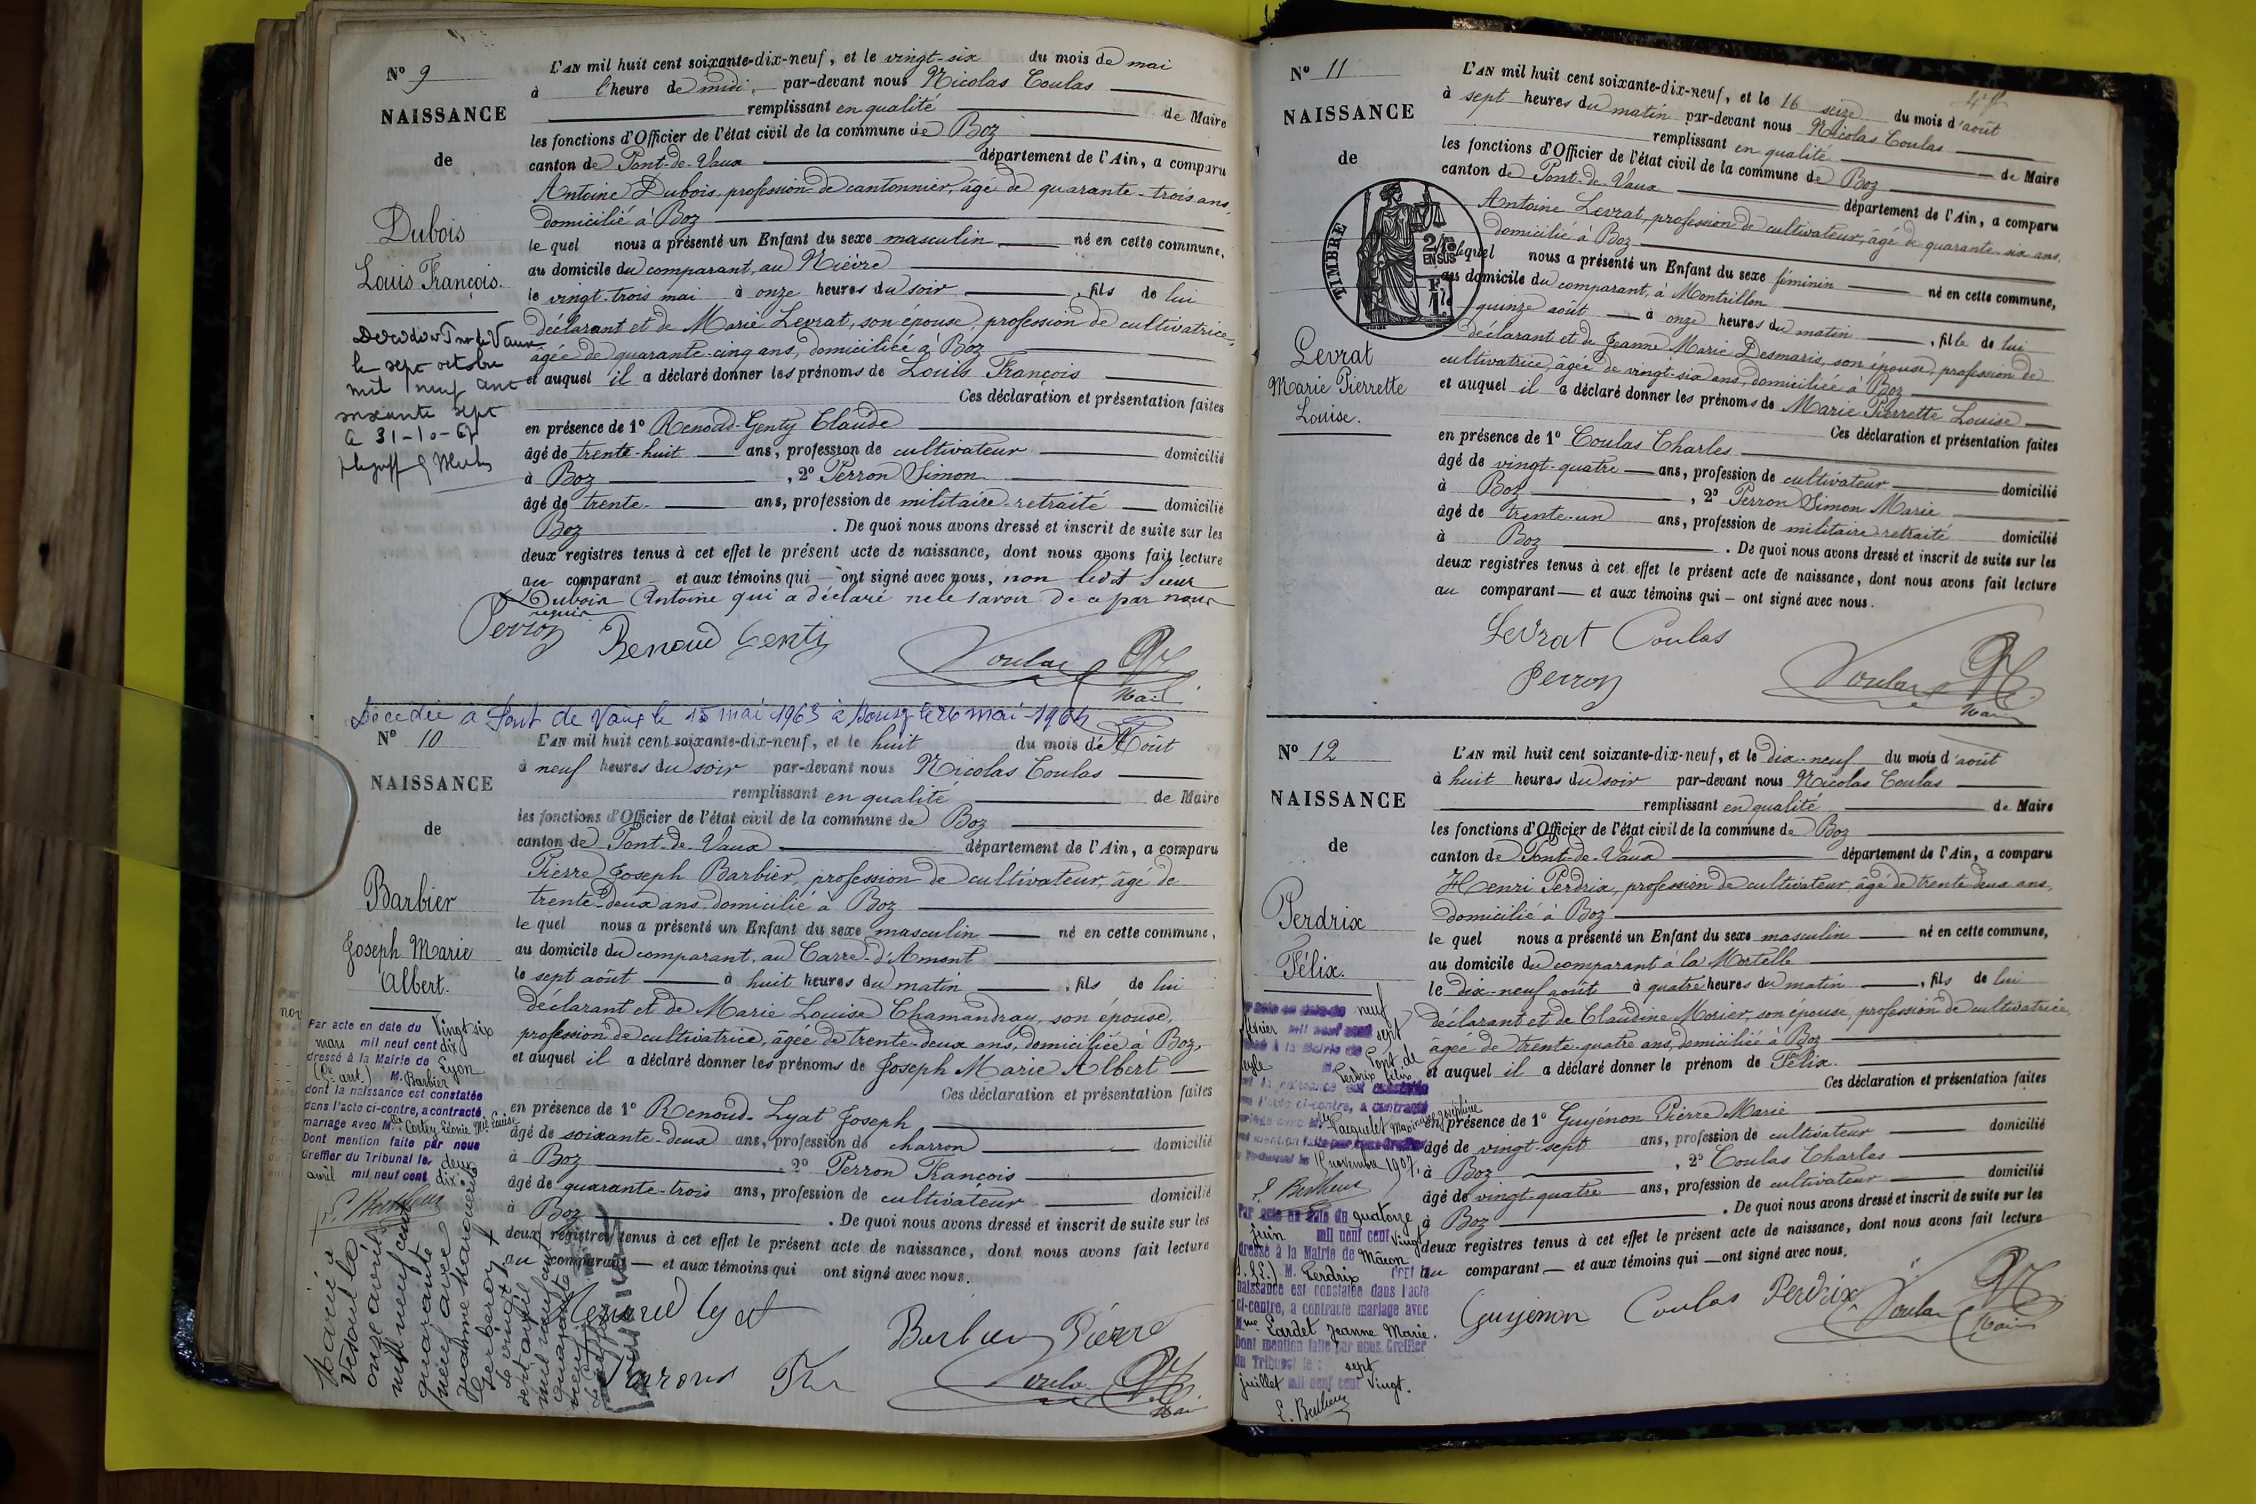 N° 9
NAISSANCE
de
Dubois
Louis François.
le sept octobre
mil neuf cent
soixante sept
31-10-67
L'AN mil huit cent soixante-dix-neuf, et le vingt-six du mois de mai
à l'heure de midi, par-devant nous Nicolas Coulas
remplissant en qualité de Maire
les fonctions d'Officier de l'état civil de la commune de Boz
canton de Pont-de-Vaux département de l'Ain, a comparu
Antoine Dubois, profession de cantonnier, âgé de quarante-trois ans,
domicilié à Boz
le quel nous a présenté un Enfant du sexe masculin né en cette commune,
au domicile du comparant, au Nièvre
le vingt-trois mai à onze heures du soir, fils de lui
déclarant et de Marie Levrat, son épouse, profession de cultivatrice,
âgée de quarante-cinq ans, domiciliée à Boz
et auquel il a déclaré donner les prénoms de Louis François
Ces déclaration et présentation faites
en présence de 1° Renoud-Genty Claude
âgé de trente-huit ans, profession de cultivateur domicilié
à Boz, 2° Perron Simon
âgé de trente- ans, profession de militaire retraité domicilié
Boz. De quoi nous avons dressé et inscrit de suite sur les
deux registres tenus à cet effet le présent acte de naissance, dont nous avons fait lecture
au comparant et aux témoins qui ont signé avec nous, non ledit Sieur
Dubois Antoine qui a déclaré ne le savoir de ce par nous
requis
Perron Renoud Genty Coulas
Maire
Décédée à Pont de Vaux le 15 mai 1963 à Bourg le 26 mai 1964
N° 10
NAISSANCE
de
Barbier
Joseph Marie
Albert.
Par acte en date du Vingt six
mars mil neuf cent dix
dressé à la Mairie de Lyon
M. Barbier
dont la naissance est constatée
dans l'acte ci-contre, a contracté
mariage avec Mlle Costey Léonie Mie Louise
Dont mention faite par nous
Greffier du Tribunal le deux
avril mil neuf cent dix.
Marié à
Vesoul le
onze avril
mil neuf cent
quarante
neuf avec
Jeanne Marguerite
Le vingt
sept avril
mil neuf cent
quarante
neuf
L'AN mil huit cent soixante-dix-neuf, et le huit du mois d'Août
à neuf heures du soir par-devant nous Nicolas Coulas
remplissant en qualité de Maire
les fonctions d'Officier de l'état civil de la commune de Boz
canton de Pont-de-Vaux département de l'Ain, a comparu
Pierre Joseph Barbier, profession de cultivateur, âgé de
trente-deux ans, domicilié à Boz
le quel nous a présenté un Enfant du sexe masculin né en cette commune,
au domicile du comparant, au Carre-d'Amont
le sept août à huit heures du matin, fils de lui
déclarant et de Marie Louise Chamandray, son épouse,
profession de cultivatrice, âgée de trente-deux ans, domiciliée à Boz,
et auquel il a déclaré donner les prénoms de Joseph Marie Albert
Ces déclaration et présentation faites
en présence de 1° Renoud-Lyat Joseph
âgé de soixante-deux ans, profession de charron domicilié
à Boz, 2° Perron François
âgé de quarante-trois ans, profession de cultivateur domicilié
à Boz. De quoi nous avons dressé et inscrit de suite sur les
deux registres tenus à cet effet le présent acte de naissance, dont nous avons fait lecture
au comparant et aux témoins qui ont signé avec nous.
Renoud lyat
Barbier Pierre
Coulas
Maire
N° 11
NAISSANCE
de
TIMBRE
2/10 EN SUS
Levrat
Marie Pierrette
Louise.
L'AN mil huit cent soixante-dix-neuf, et le 16 seize du mois d'août
à sept heures du matin par-devant nous Nicolas Coulas
remplissant en qualité de Maire
les fonctions d'Officier de l'état civil de la commune de Boz
canton de Pont-de-Vaux département de l'Ain, a comparu
Antoine Levrat, profession de cultivateur, âgé de quarante-six ans,
domicilié à Boz
lequel nous a présenté un Enfant du sexe féminin né en cette commune,
au domicile du comparant, à Montrillon
quinze août à onze heures du matin, fille de lui
déclarant et de Jeanne Marie Desmaris, son épouse, profession de
cultivatrice, âgée de vingt-six ans, domiciliée à Boz
et auquel il a déclaré donner les prénoms de Marie Pierrette Louise
Ces déclaration et présentation faites
en présence de 1° Coulas Charles
âgé de vingt-quatre ans, profession de cultivateur domicilié
à Boz, 2° Perron Simon Marie
âgé de trente-un ans, profession de militaire retraité domicilié
à Boz. De quoi nous avons dressé et inscrit de suite sur les
deux registres tenus à cet effet le présent acte de naissance, dont nous avons fait lecture
au comparant et aux témoins qui ont signé avec nous.
Levrat Coulas
Perron Coulas
Maire
N° 12
NAISSANCE
de
Perdrix
Félix.
neuf
février mil neuf cent sept
à la Mairie de Pont de
Veyle
Perdrix Félix
la naissance est constatée
dans l'acte ci-contre, a contracté
novembre 1907.
Par acte en date du quatorze
juin mil neuf cent vingt
dressé à la Mairie de Mâcon
M. Perdrix dont la
naissance est constatée dans l'acte
ci-contre, a contracté mariage avec
Mme Lardet Jeanne Marie.
Dont mention faite par nous, Greffier
du Tribunal le sept
juillet mil neuf cent vingt.
L'AN mil huit cent soixante-dix-neuf, et le dix-neuf du mois d'août
à huit heures du soir par-devant nous Nicolas Coulas
remplissant en qualité de Maire
les fonctions d'Officier de l'état civil de la commune de Boz
canton de Pont-de-Vaux département de l'Ain, a comparu
Henri Perdrix, profession de cultivateur, âgé de trente-deux ans,
domicilié à Boz
le quel nous a présenté un Enfant du sexe masculin né en cette commune,
au domicile du comparant à la Mortelle
le dix-neuf août à quatre heures du matin, fils de lui
déclarant et de Claudine Morier, son épouse, profession de cultivatrice,
âgée de trente-quatre ans, domiciliée à Boz
et auquel il a déclaré donner le prénom de Félix
Ces déclaration et présentation faites
en présence de 1° Guyénon Pierre Marie
âgé de vingt-sept ans, profession de cultivateur domicilié
à Boz, 2° Coulas Charles
âgé de vingt-quatre ans, profession de cultivateur domicilié
à Boz. De quoi nous avons dressé et inscrit de suite sur les
deux registres tenus à cet effet le présent acte de naissance, dont nous avons fait lecture
au comparant et aux témoins qui ont signé avec nous.
Guyénon Coulas Perdrix Coulas
Maire